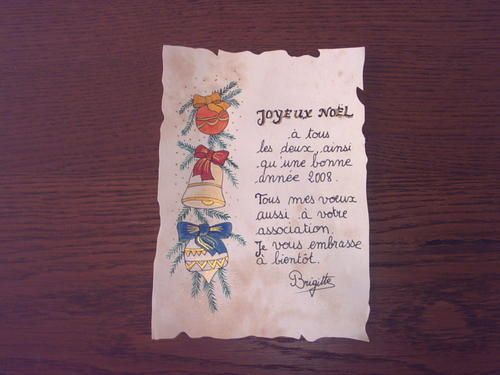 JOYEUX NOËL
à tous
les deux, ainsi
qu'une bonne
année 2008.
Tous mes vœux
aussi à votre
association.
Je vous embrasse
à bientôt.
Brigitte